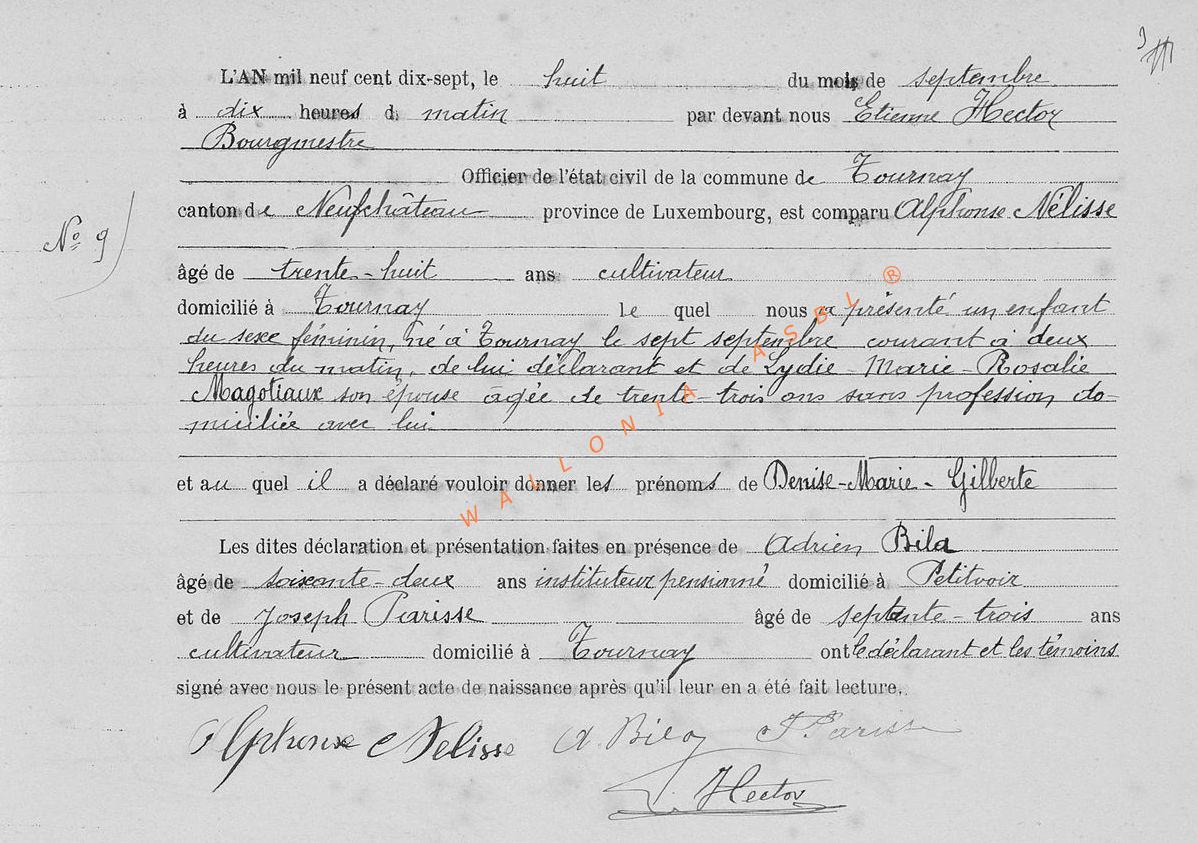 L'AN mil neuf cent dix-sept, le huit du mois de septembre
à dix heures d. matin par devant nous Etienne Hector
Bourgmestre
Officier de l'état civil de la commune de Tournay
canton de Neufchâteau province de Luxembourg, est comparu Alphonse Nélisse
N° 9
âgé de trente-huit ans cultivateur
domicilié à Tournay le quel nous a présenté un enfant
du sexe féminin, né à Tournay le sept septembre courant à deux
heures du matin, de lui déclarant et de Lydie-Marie-Rosalie
Magotiaux son épouse âgée de trente-trois ans sans profession do-
miciliée avec lui
et au quel il a déclaré vouloir donner les prénoms de Denise-Marie-Gilberte
Les dites déclaration et présentation faites en présence de Adrien Bila
âgé de soixante-deux ans instituteur pensionné domicilié à Petitvoir
et de Joseph Parisse âgé de septante-trois ans
cultivateur domicilié à Tournay ont le déclarant et les témoins
signé avec nous le présent acte de naissance après qu'il leur en a été fait lecture.
Alphonse Nelisse A. Bila J. Parisse
E. Hector
WALLONIA ASBL ®